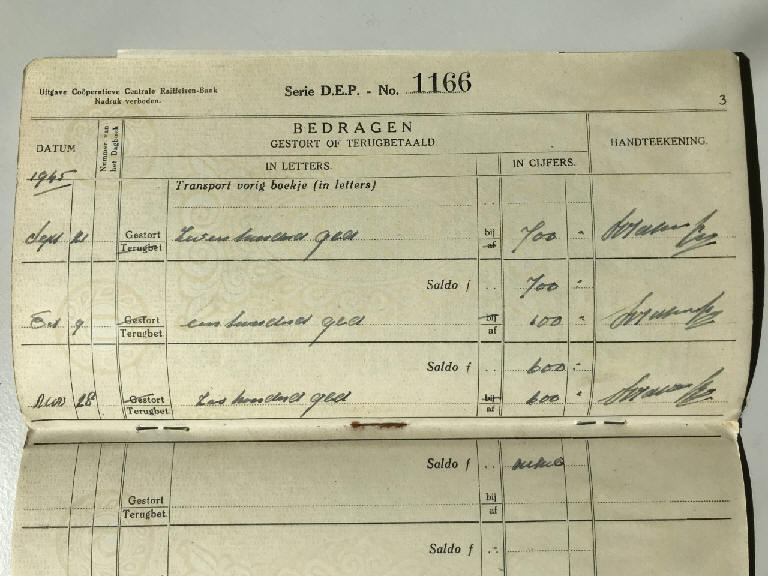 Uitgave Coöperatieve Centrale Raiffeisen-Bank
Nadruk verboden.
Serie D.E.P. - No. 1166
3
DATUM
Nummer van het Dagboek
BEDRAGEN
GESTORT OF TERUGBETAALD
HANDTEEKENING.
IN LETTERS.
IN CIJFERS.
1945
Transport vorig boekje (in letters)
Sept 21 Gestort Zevenhonderd gld bij 700 "
Terugbet af
Saldo f 700 "
Oct 9 Gestort eenhonderd gld bij 100 "
Terugbet. af
Saldo f 600 "
Nov 28 Gestort Zeshonderd gld bij 600 "
Terugbet af
Saldo f nihil
Gestort bij
Terugbet. af
Saldo f